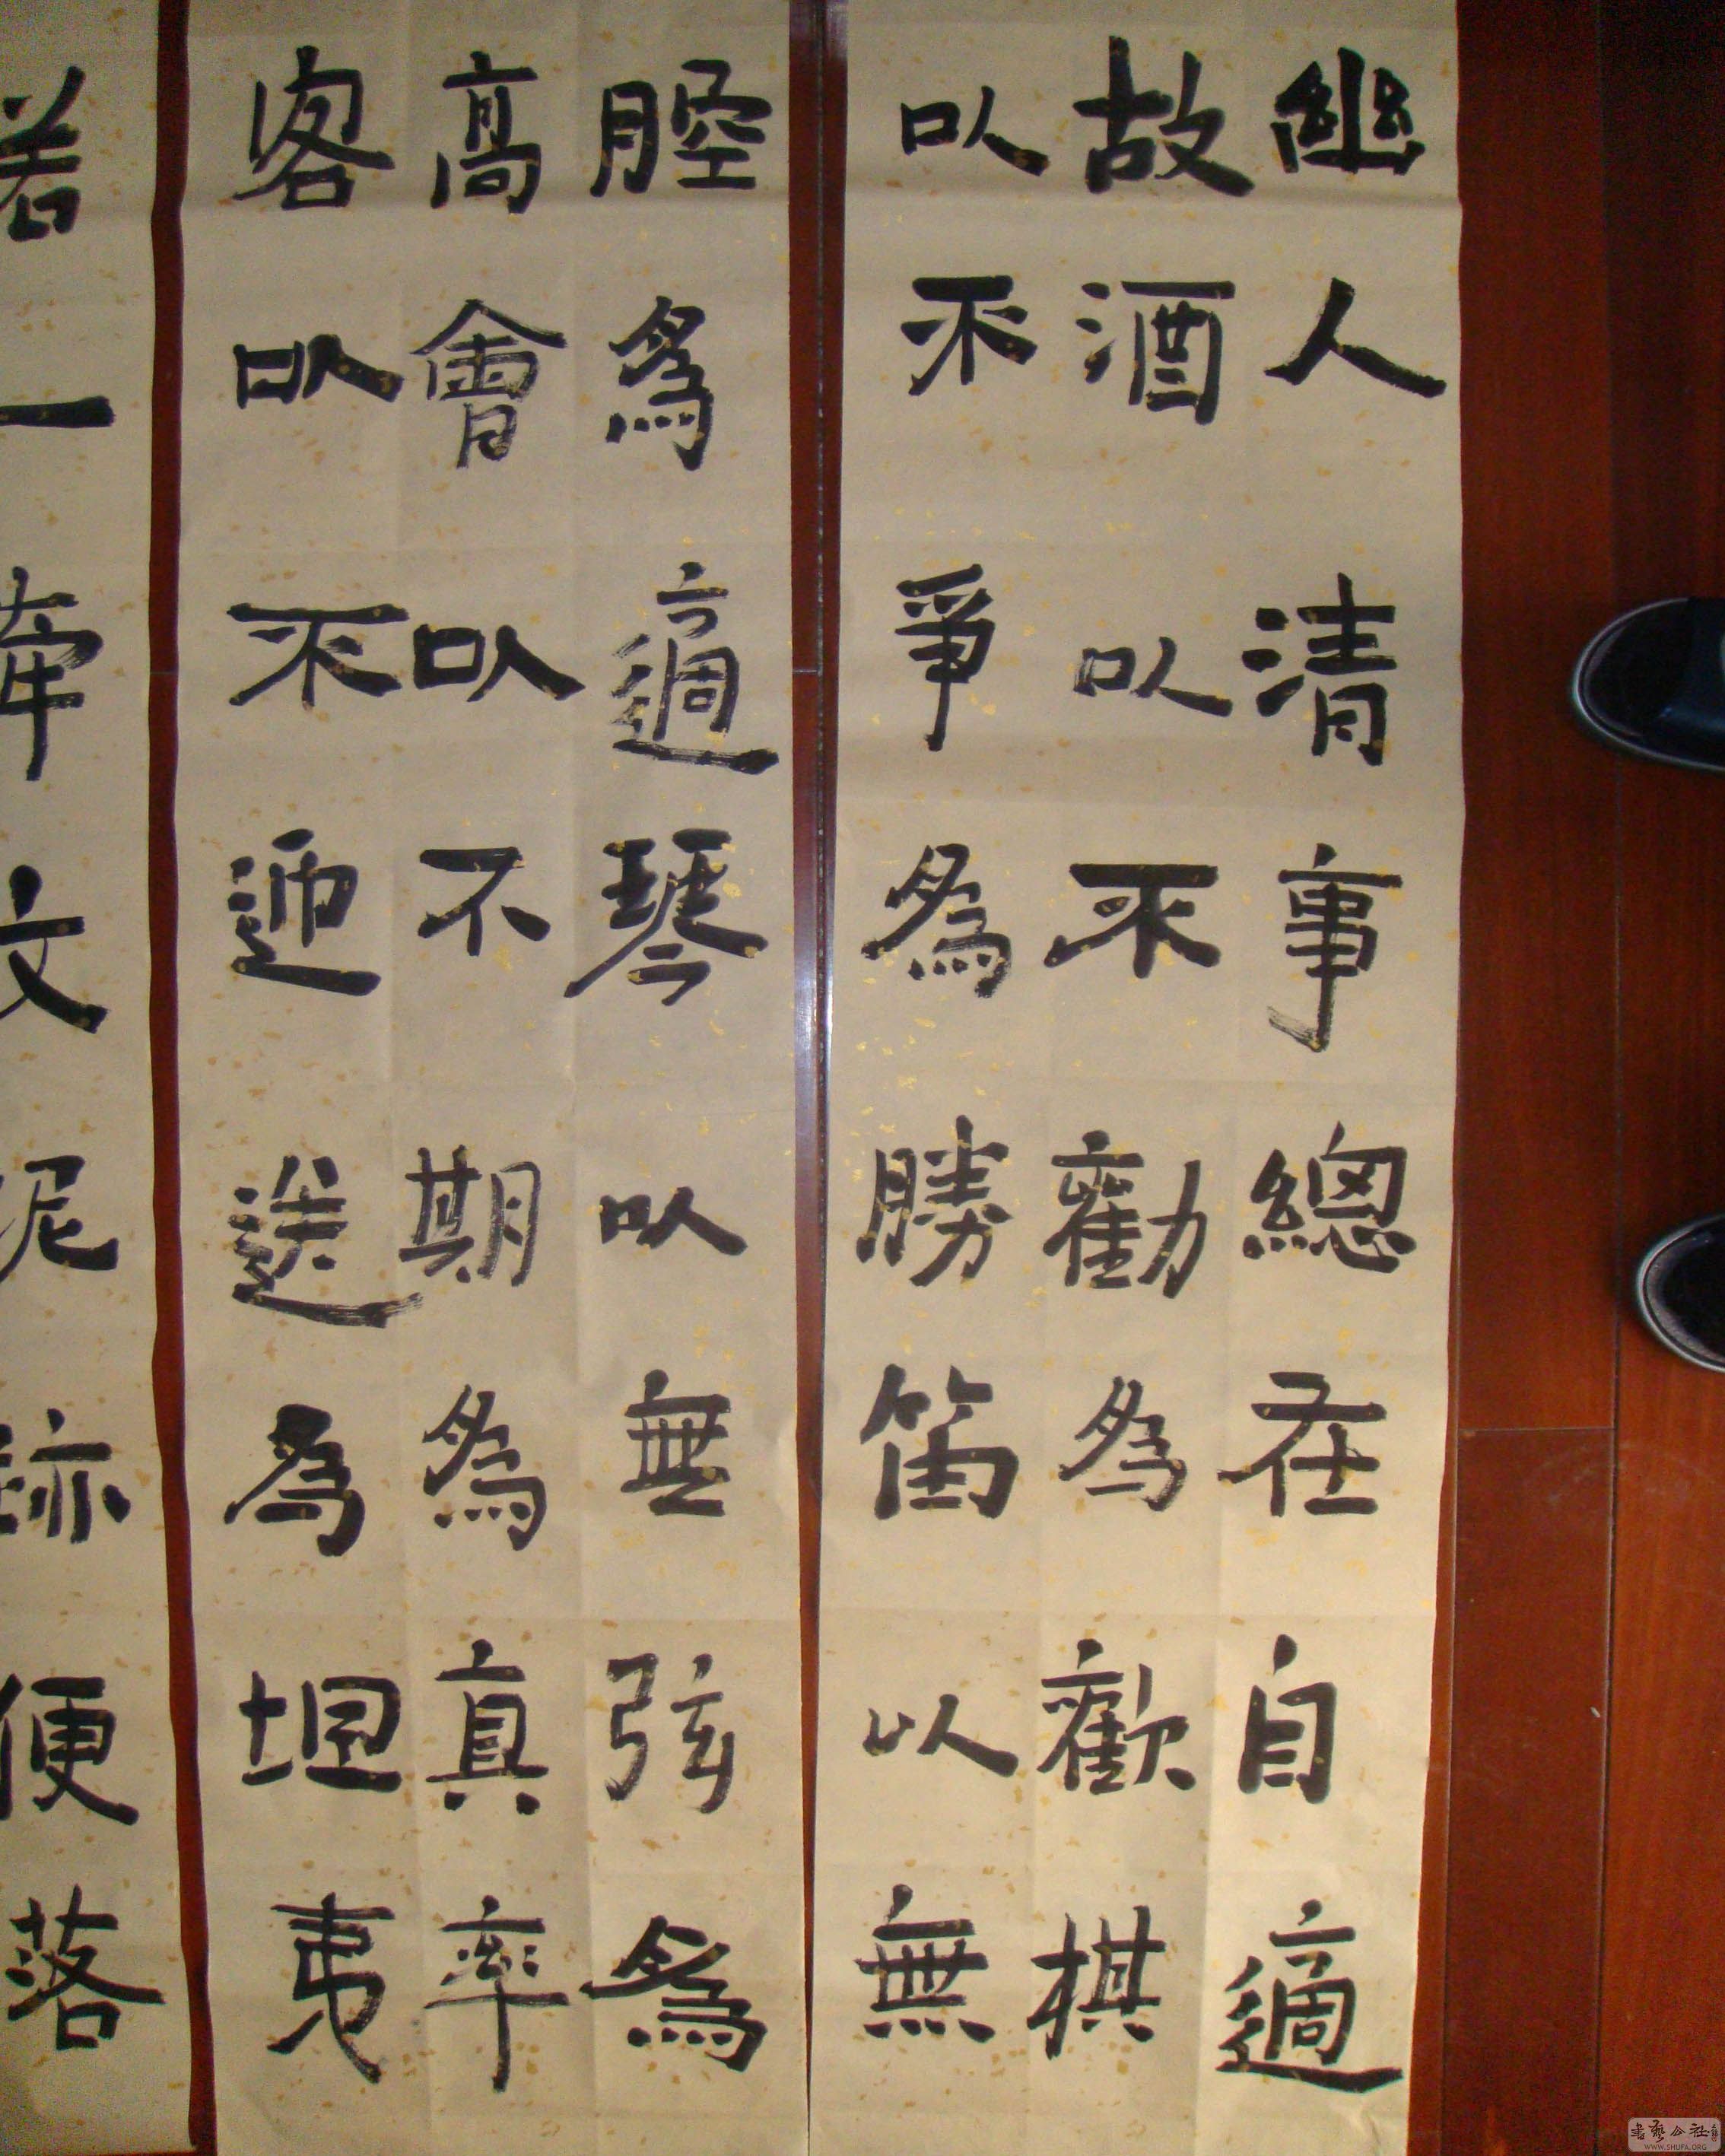 幽人清事總在自適
故酒以不勸為歡棋
以不爭為勝笛以無
腔為適琴以無弦為
高會以不期為真率
客以不迎送為坦夷
若一牽文泥跡便落
書藝公社
WWW.SHUFA.ORG